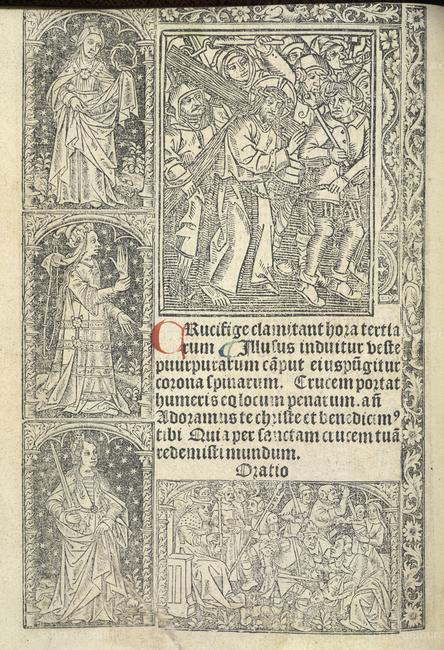 CRucifige clamitant hora tertia
rum ⸿ Illusus induitur veste
puurpurarum cāput eiuspūgitur
corona spinarum. Crucem portat
humeris eo locum penarum. añ
Adoramus te christe et benedicimꝰ
tibi Quia per sanctam crucem tuā
redemisti mundum.
Oratio